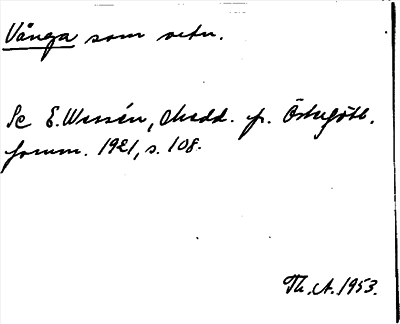 Vånga som ortn.
Se E. Wessén, Medd. fr. Östergötl.
fornm. 1921, s. 108.
Th. A. 1953.